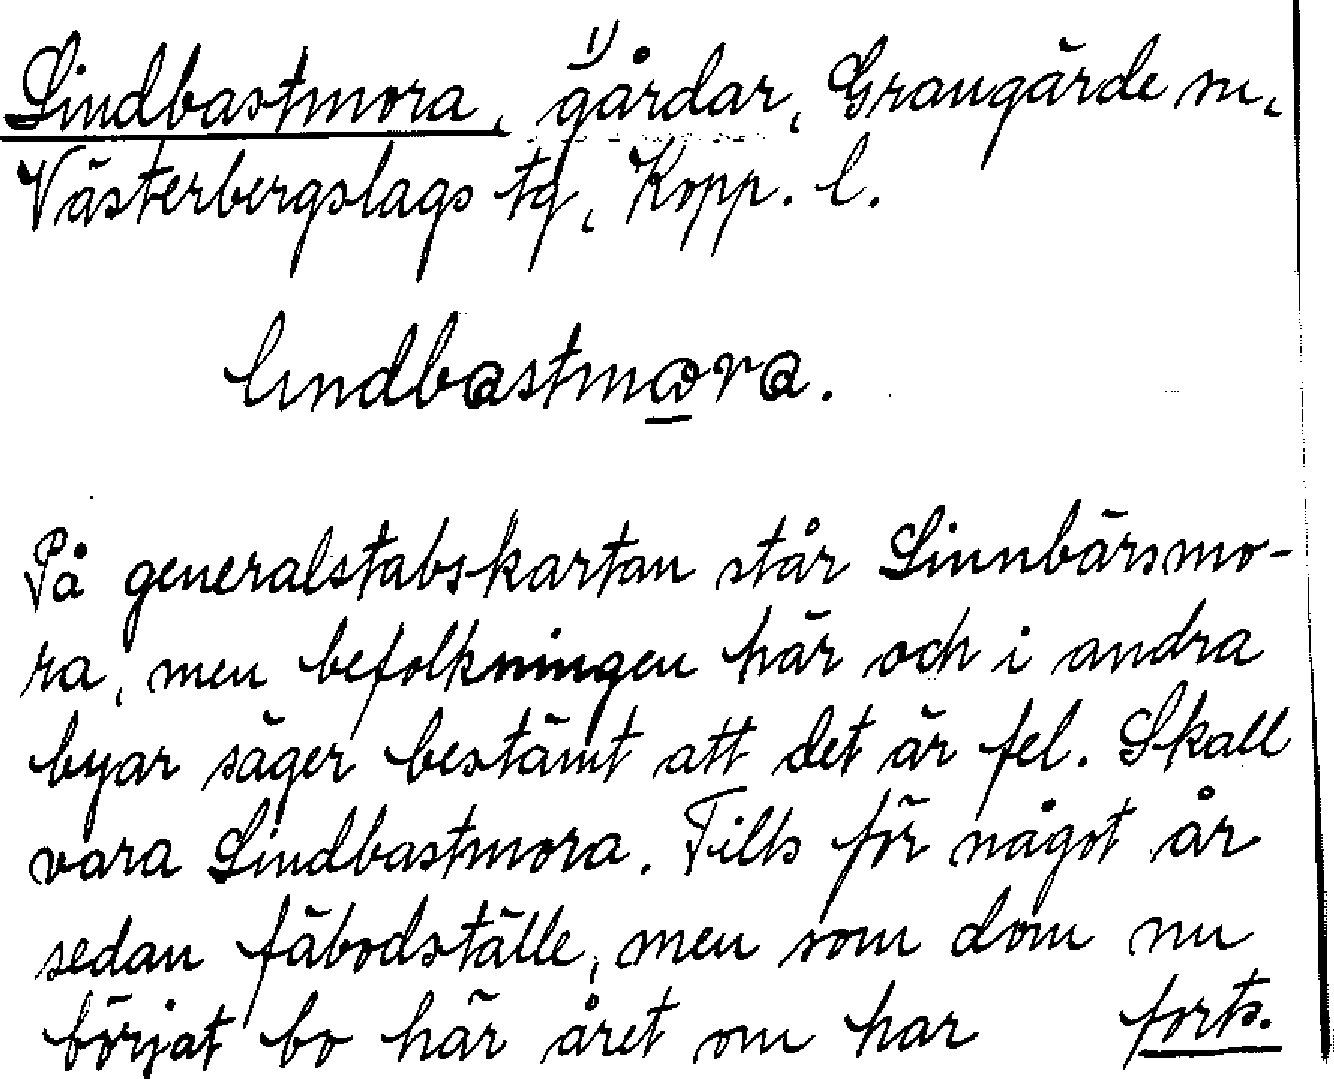 Lindbastmora, gårdar, ¹⁾ Grangärde sn,
Västerbergslags tg, Kopp. l.
lindbastmωra.
På generalstabskartan står Linnbärsmo-
ra, men befolkningen här och i andra
byar säger bestämt att det är fel. Skall
vara Lindbastmora. Tills för något år
sedan fäbodställe, men som dom nu
börjat bo här året om har forts.